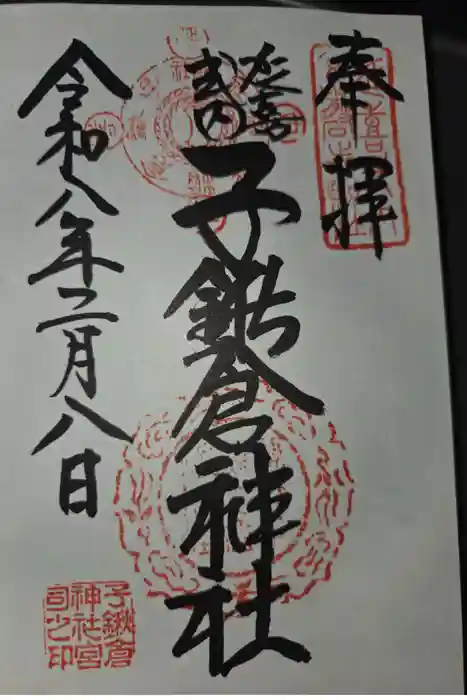 奉拝
延喜
式内
子鍬倉神社
令和八年二月八日
子鍬倉
神社宮
司之印